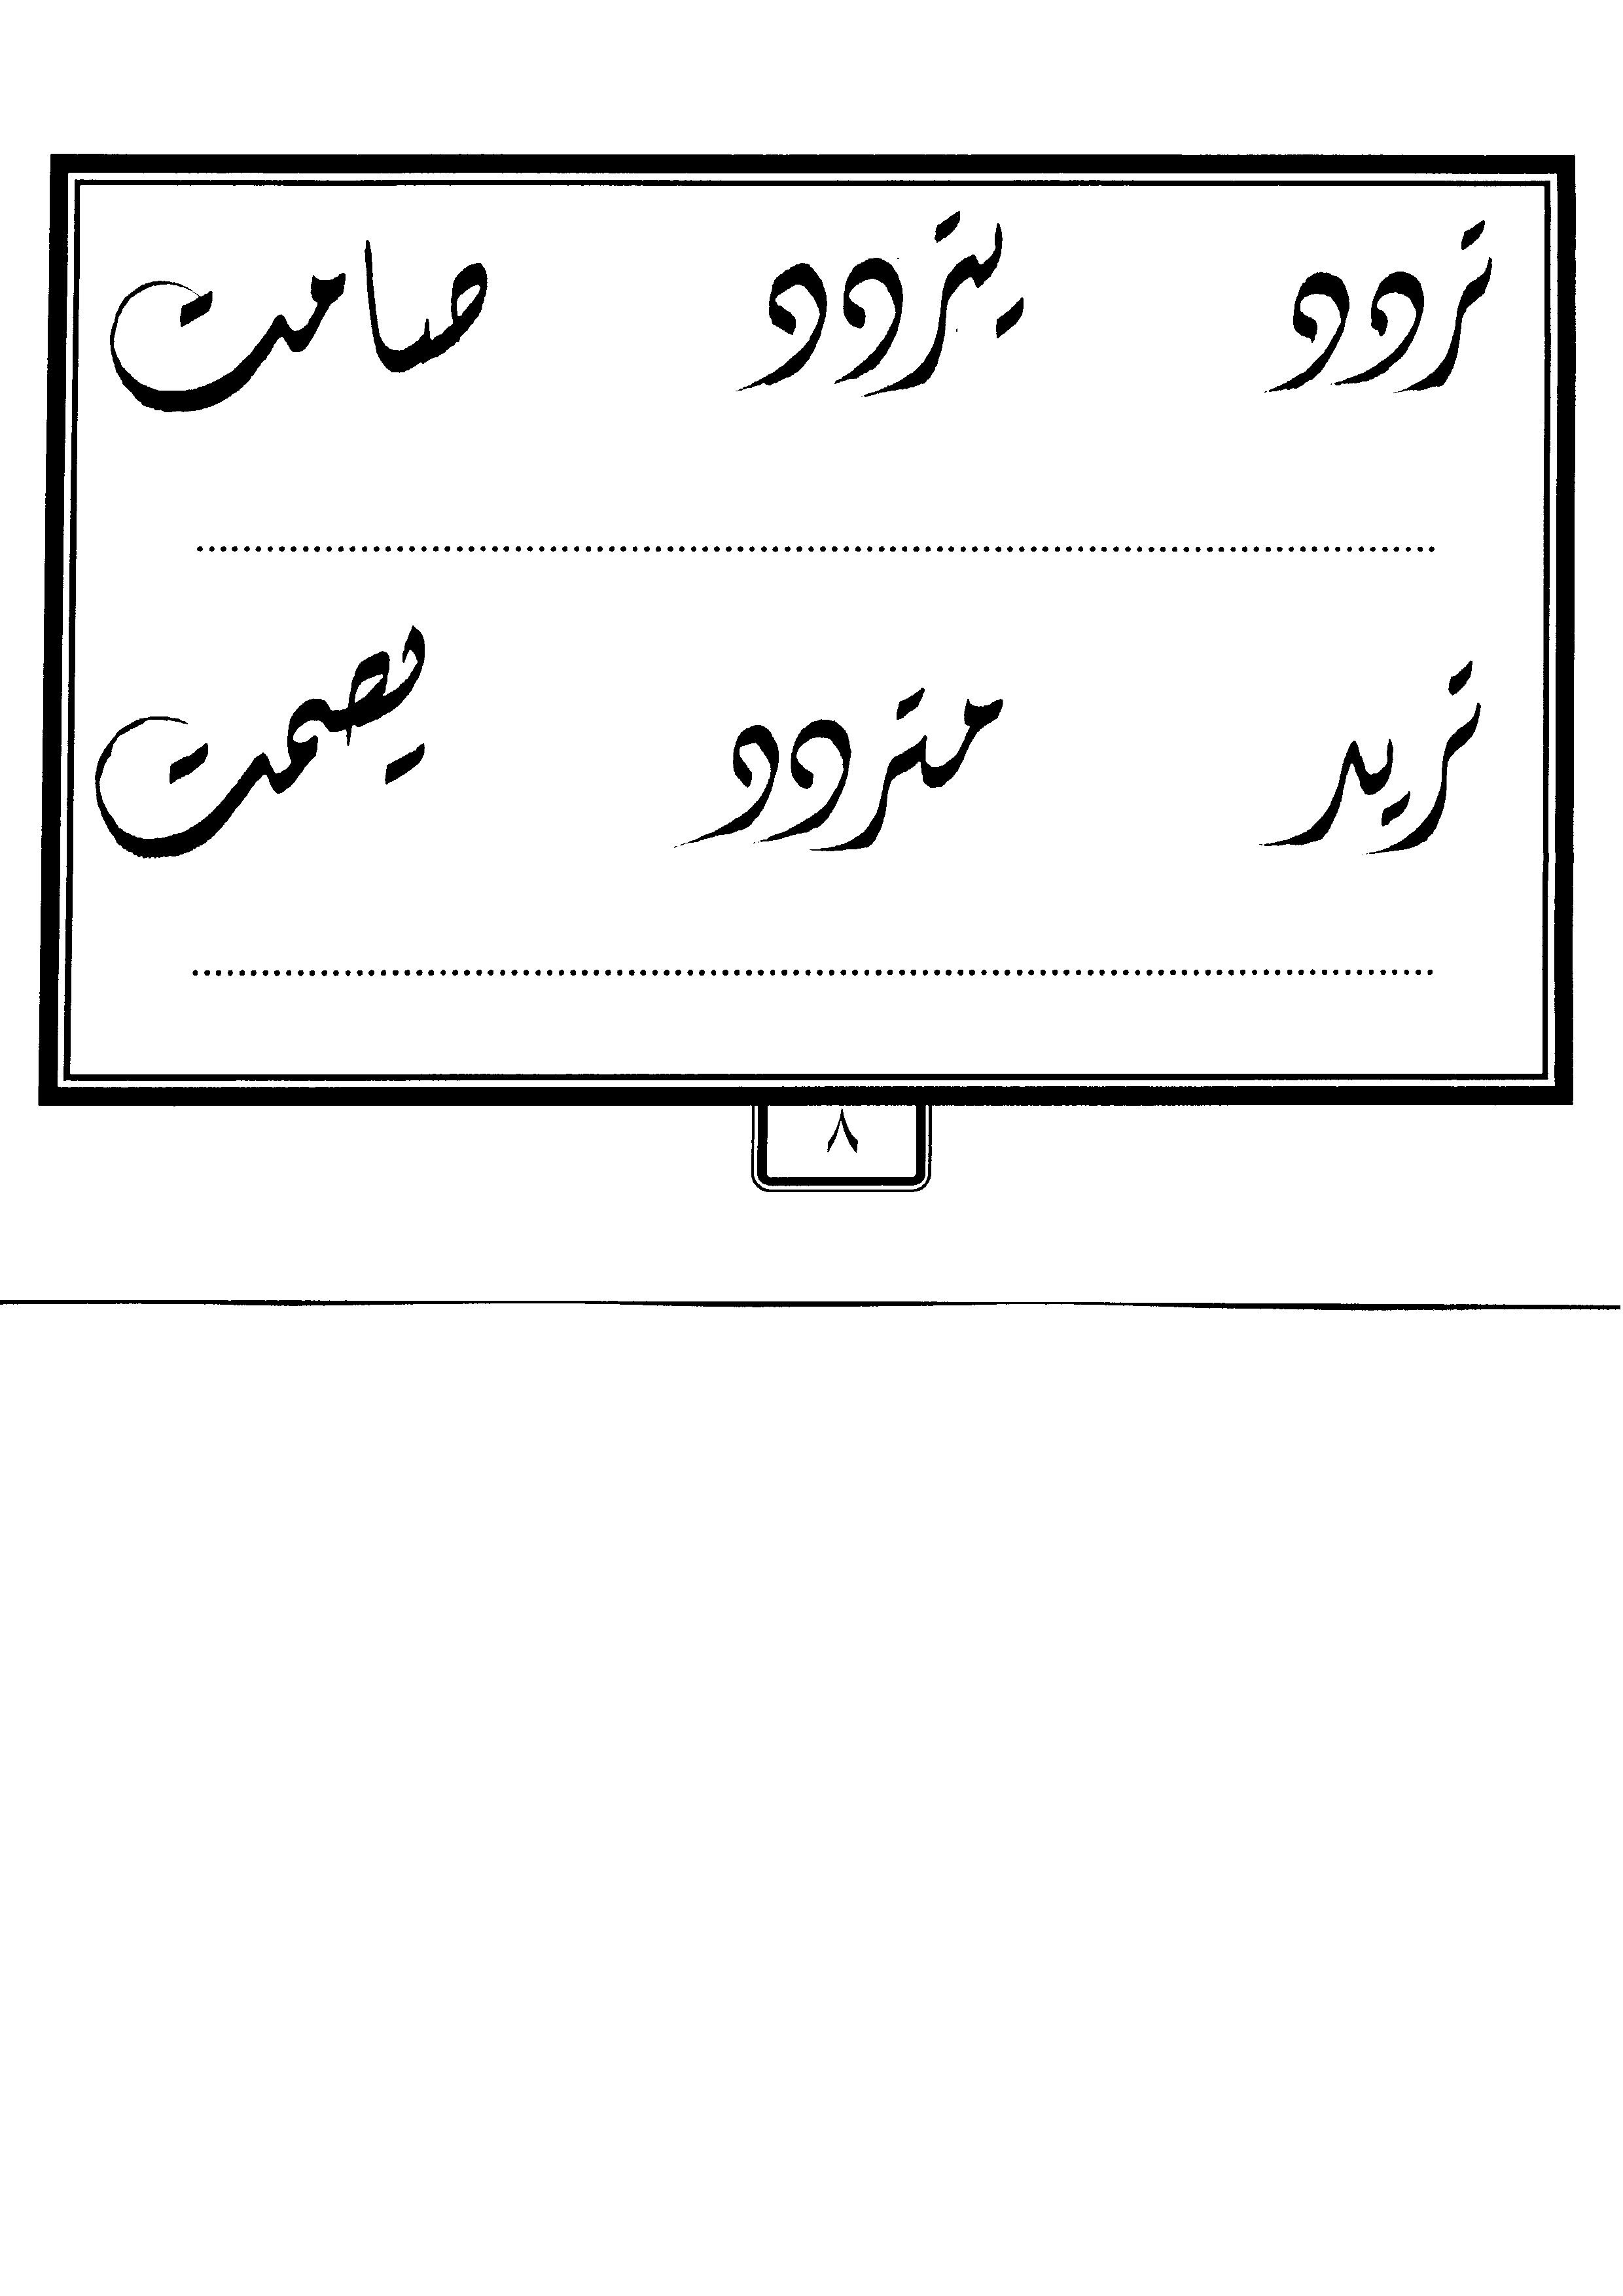 تردد يتردد صامت
تريد متردد يصمت
٨